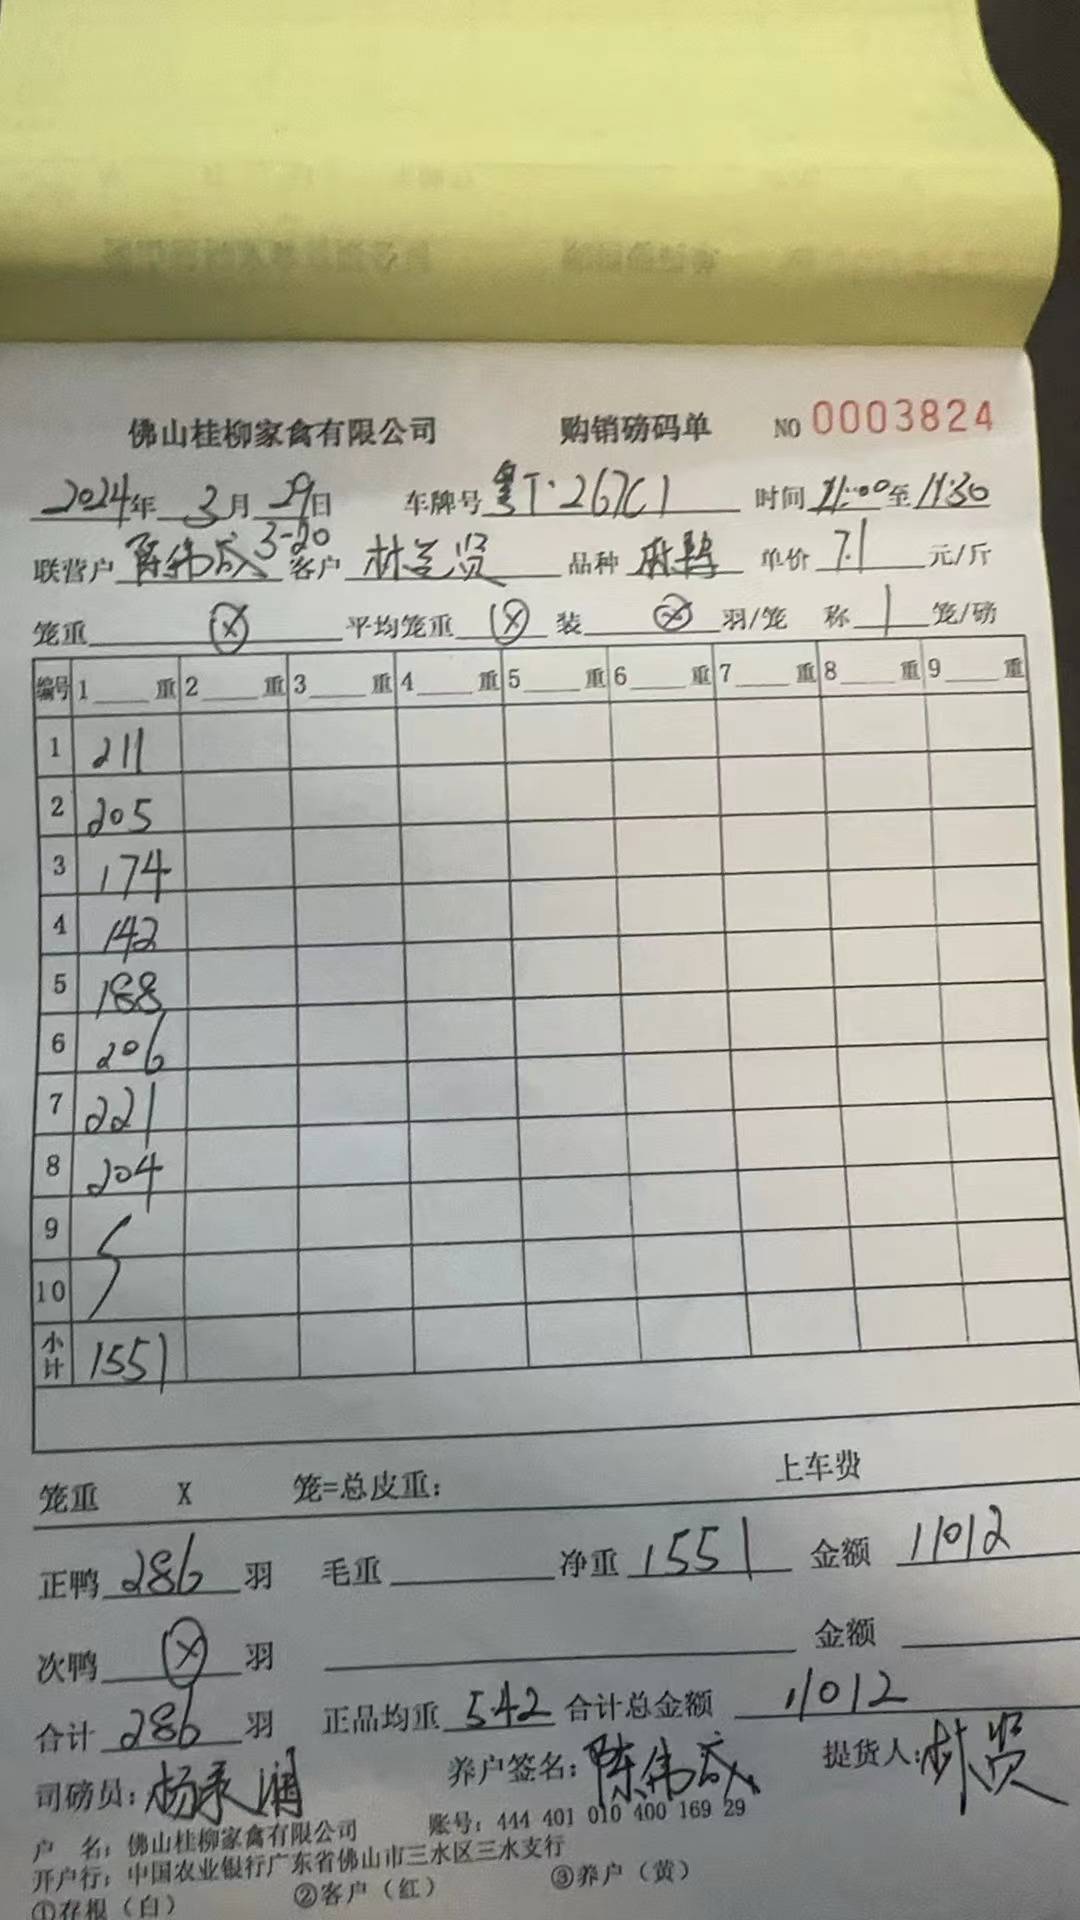 佛山桂柳家禽有限公司 购销磅码单 NO 0003824
2024年 3月 29日 车牌号 粤T·267C1 时间 11:00 至 11:30
联营户 陈伟成 3-20 客户 林 贤 品种 麻鸭 单价 7.1 元/斤
笼重 ⊗ 平均笼重 ⊗ 装 ⊗ 羽/笼 称 1 笼/磅
编号 1 重 2 重 3 重 4 重 5 重 6 重 7 重 8 重 9 重
1 211
2 205
3 174
4 142
5 188
6 206
7 221
8 204
9
10
小计 1551
笼重 X 笼=总皮重: 上车费
正鸭 286 羽 毛重 净重 1551 金额 11012
次鸭 ⊗ 羽 金额
合计 286 羽 正品均重 5.42 合计总金额 11012
司磅员: 杨 润 养户签名: 陈伟成 提货人: 林 贤
户 名: 佛山桂柳家禽有限公司 账号: 444 401 010 400 169 29
开户行: 中国农业银行广东省佛山市三水区三水支行
①存根（白） ②客户（红） ③养户（黄）